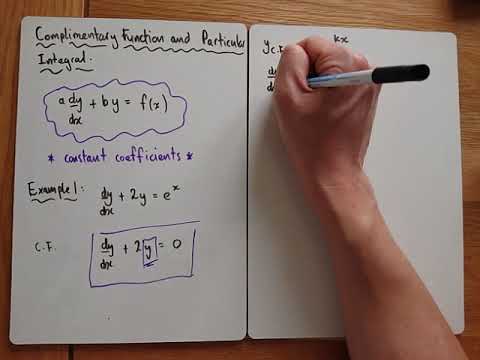 Complimentary Function and Particular
Integral.
a dy/dx + by = f(x)
* constant coefficients *
Example 1: dy/dx + 2y = e^x
C.F. dy/dx + 2y = 0
y C.F. kx
dy/dx